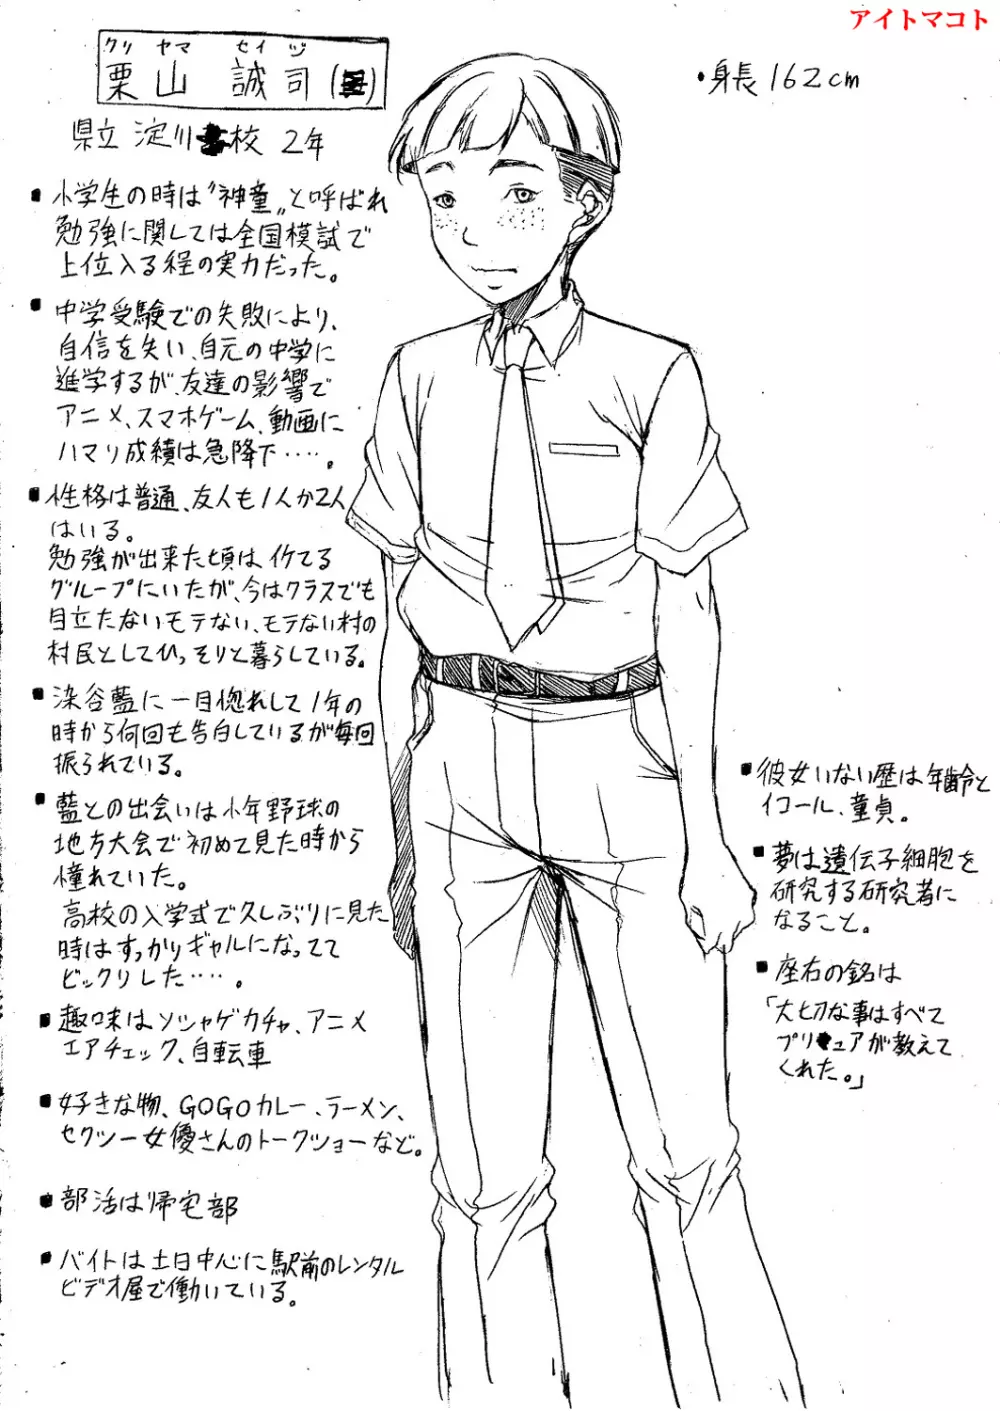 アイトマコト
クリ ヤマ セイジ
栗山 誠司( )
・身長162cm
県立 淀川 校 2年
■ 小学生の時は〝神童〟と呼ばれ
勉強に関しては全国模試で
上位入る程の実力だった。
■ 中学受験での失敗により、
自信を失い、自元の中学に
進学するが、友達の影響で
アニメ、スマホゲーム、動画に
ハマり成績は急降下‥‥。
■ 性格は普通、友人も1人か2人
はいる。
勉強が出来た頃はイケてる
グループにいたが、今はクラスでも
目立たないモテない、モテない村の
村民としてひっそりと暮らしている。
■ 染谷藍に一目惚れして1年の
時から何回も告白しているが毎回
振られている。
■ 藍との出会いは少年野球の
地方大会で初めて見た時から
憧れていた。
高校の入学式で久しぶりに見た
時はすっかりギャルになってて
ビックリした‥‥。
■ 趣味はソシャゲガチャ、アニメ
エアチェック、自転車
■ 好きな物、GOGOカレー、ラーメン、
セクシー女優さんのトークショーなど。
■ 部活は帰宅部
■ バイトは土日中心に駅前のレンタル
ビデオ屋で働いている。
■ 彼女いない歴は年齢と
イコール、童貞。
■ 夢は遺伝子細胞を
研究する研究者に
なること。
■ 座右の銘は
「大切な事はすべて
プリ ュアが教えて
くれた。」